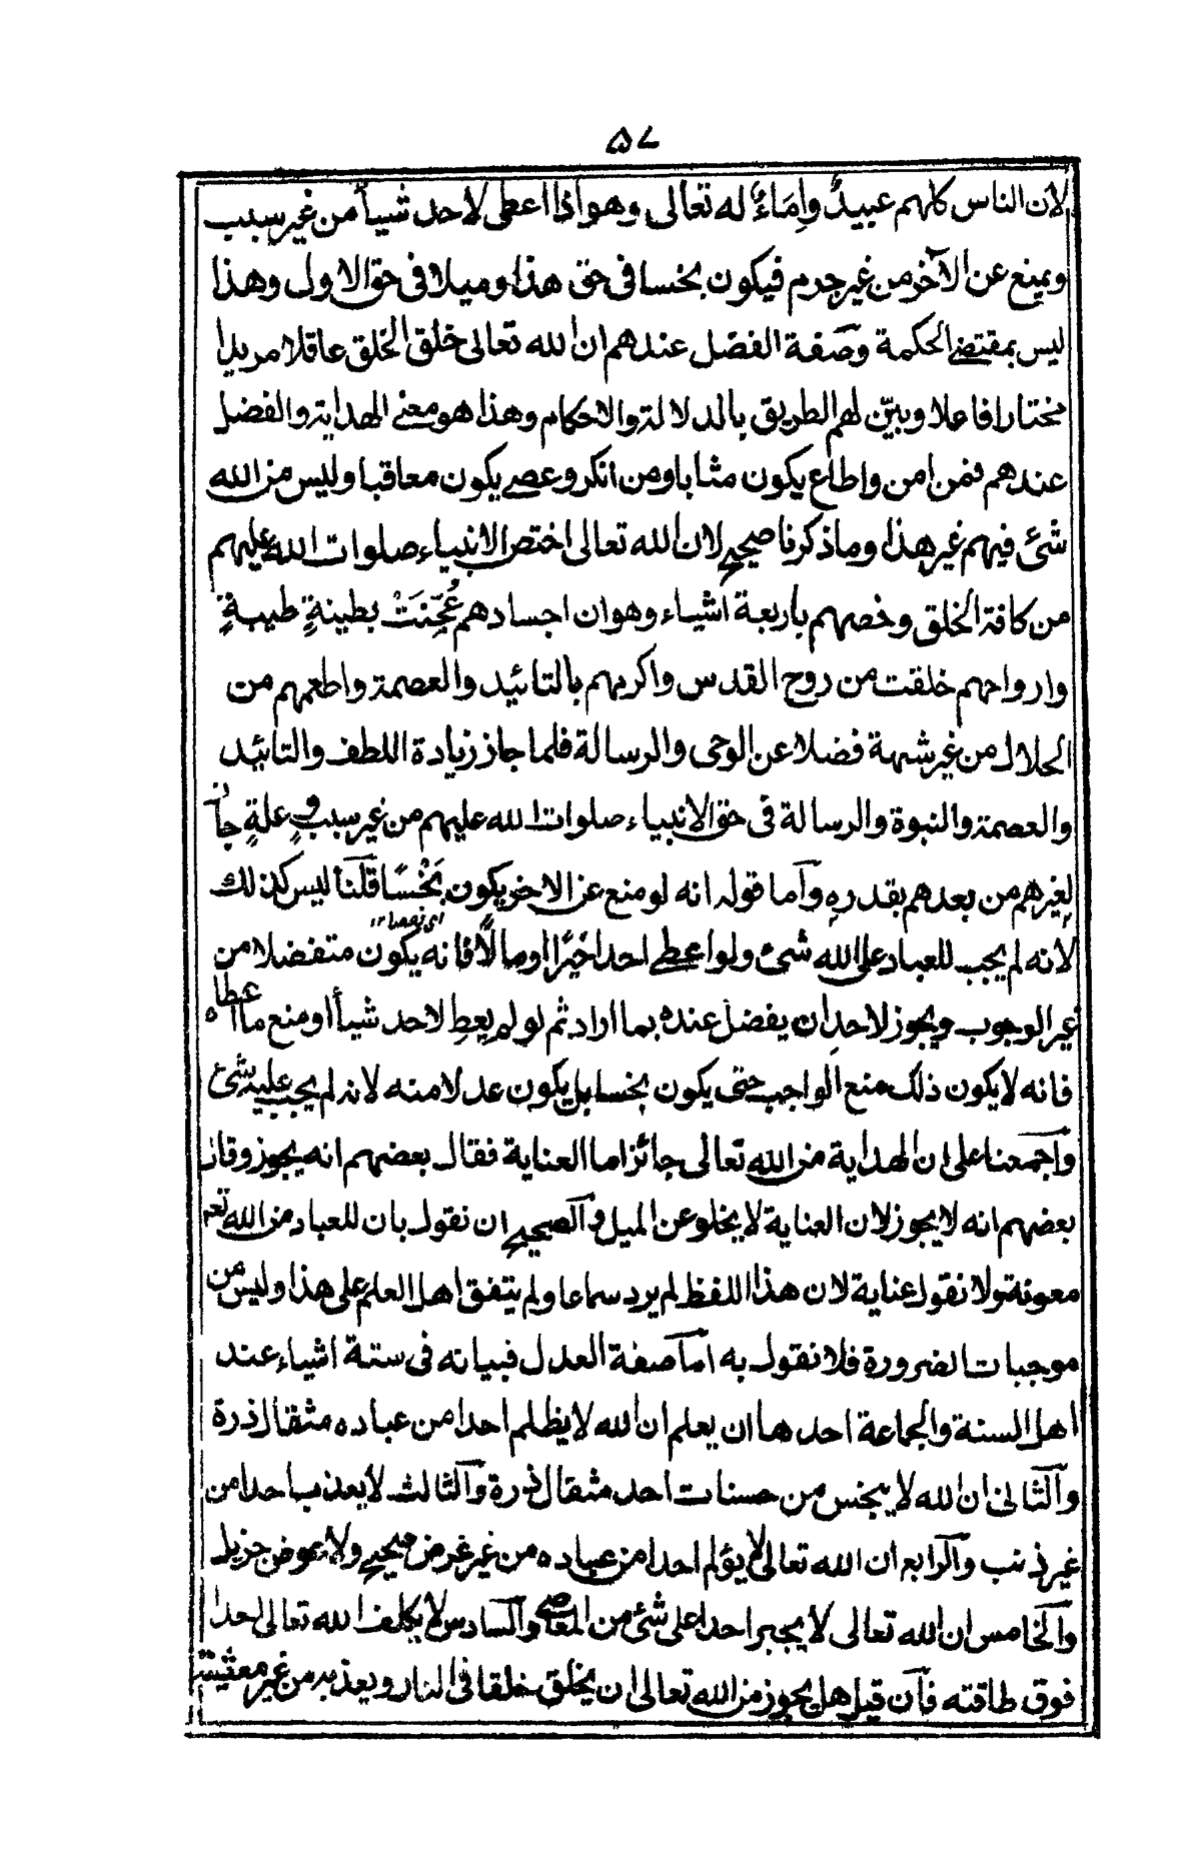 ٥٧
لان الناس كلهم عبيدٌ واِمَاءٌ له تعالى وهو اذا اعطى لاحد شيأ من غير سبب
ويمنع عن الآخر من غير جرم فيكون بخسا فى حق هذا وميلا فى حق الاول وهذا
ليس بمقتضى الحكمة وصفة الفضل عندهم ان الله تعالى خلق الخلق عاقلا مريدا
مختارا فاعلا وبيّن لهم الطريق بالدلالة والاحكام وهذا هو معنى الهداية والفضل
عندهم فمن امن واطاع يكون مثابا ومن انكر وعصى يكون معاقبا وليس من الله
شئ فيهم غير هذا وما ذكرنا صحيح لان الله تعالى اختص الانبياء صلوات الله عليهم
من كافة الخلق وخصهم باربعة اشياء وهو ان اجسادهم عُجِنَتْ بطينةٍ طيبةٍ
وارواحهم خلقت من روح القدس واكرمهم بالتائيد والعصمة واطعمهم من
الحلال من غير شبهة فضلا عن الوحى والرسالة فلما جاز زيادة اللطف والتائيد
والعصمة والنبوة والرسالة فى حق الانبياء صلوات الله عليهم من غير سببٍ وعلةٍ جاز
لغيرهم من بعدهم بقدرهٖ وآما قوله انه لو منع عن الاخر يكون بَخْسًا قلنا ليس كذلك
اى نقصا ١٢
لانه لم يجب للعباد على الله شئ ولو اعطى احدا خيرًا او مالًا فانه يكون متفضلا من
غير الوجوب ويجوز لاحد ان يفضل عنده بما اراد ثم لو لم يعطِ لاحد شيأ او منع ما اعطاه
فانه لا يكون ذلك منع الواجب حتى يكون بخسا بل يكون عدلا منه لانه لم يجب عليه شئ
واجمعنا على ان الهداية من الله تعالى جائز اما العناية فقال بعضهم انه يجوز وقال
بعضهم انه لا يجوز لان العناية لا يخلو عن الميل والصحيح ان نقول بان للعباد من الله تعم
معونة ولا نقول عناية لان هذا اللفظ لم يرد سماعا ولم يتفق اهل العلم على هذا وليس من
موجبات الضرورة فلا نقول به اما صفة العدل فبيانه فى ستة اشياء عند
اهل السنة والجماعة احدها ان يعلم ان الله لا يظلم احدا من عباده مثقال ذرة
والثانى ان الله لا يبخس من حسنات احد مثقال ذرة والثالث لا يعذب احدا من
غير ذنب والرابع ان الله تعالى لا يؤلم احدا من عباده من غير غرض صحيح ولا بعوض جزيل
والخامس ان الله تعالى لا يجبر احدا على شئ من المعاصى والسادس لا يكلف الله تعالى احدا
فوق طاقته فآن قيل هل يجوز من الله تعالى ان يخلق خلقا فى النار ويعذبه من غير معصيته